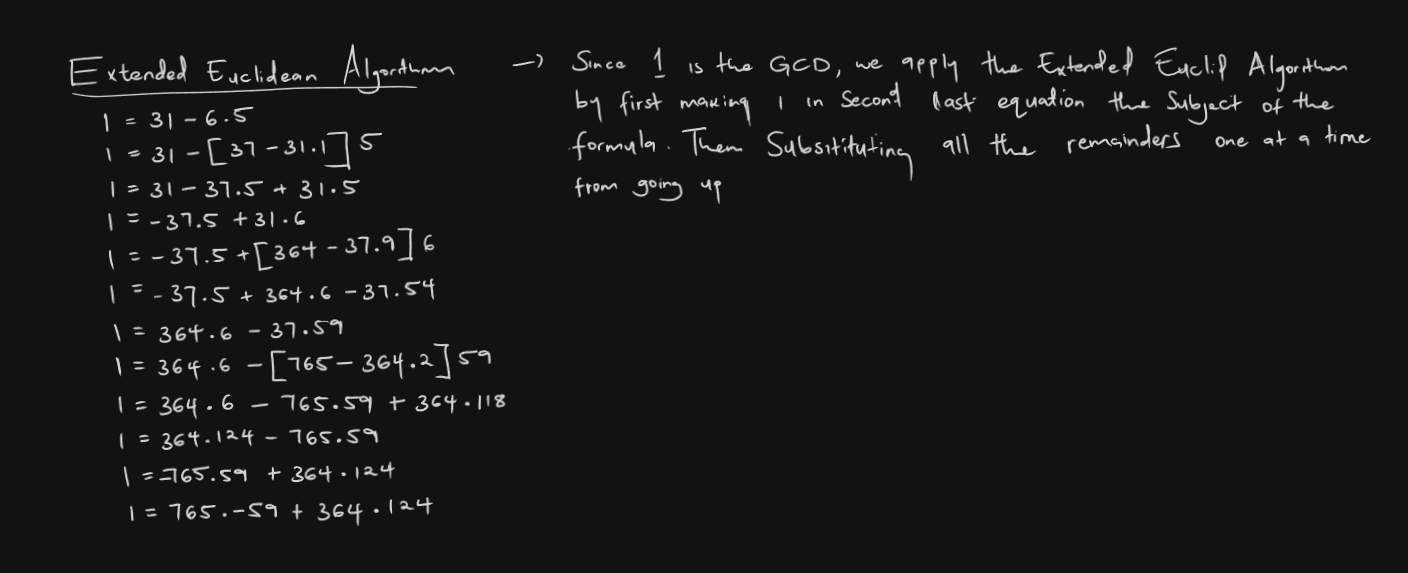 Extended Euclidean Algorithm
1 = 31 - 6.5
1 = 31 - [37 - 31.1] 5
1 = 31 - 37.5 + 31.5
1 = -37.5 + 31.6
1 = -37.5 + [364 - 37.9] 6
1 = -37.5 + 364.6 - 37.54
1 = 364.6 - 37.59
1 = 364.6 - [765 - 364.2] 59
1 = 364.6 - 765.59 + 364.118
1 = 364.124 - 765.59
1 = -765.59 + 364.124
1 = 765.-59 + 364.124
→ Since 1 is the GCD, we apply the Extended Euclid Algorithm
by first making 1 in Second last equation the Subject of the
formula. Then Subsitituting all the remainders one at a time
from going up